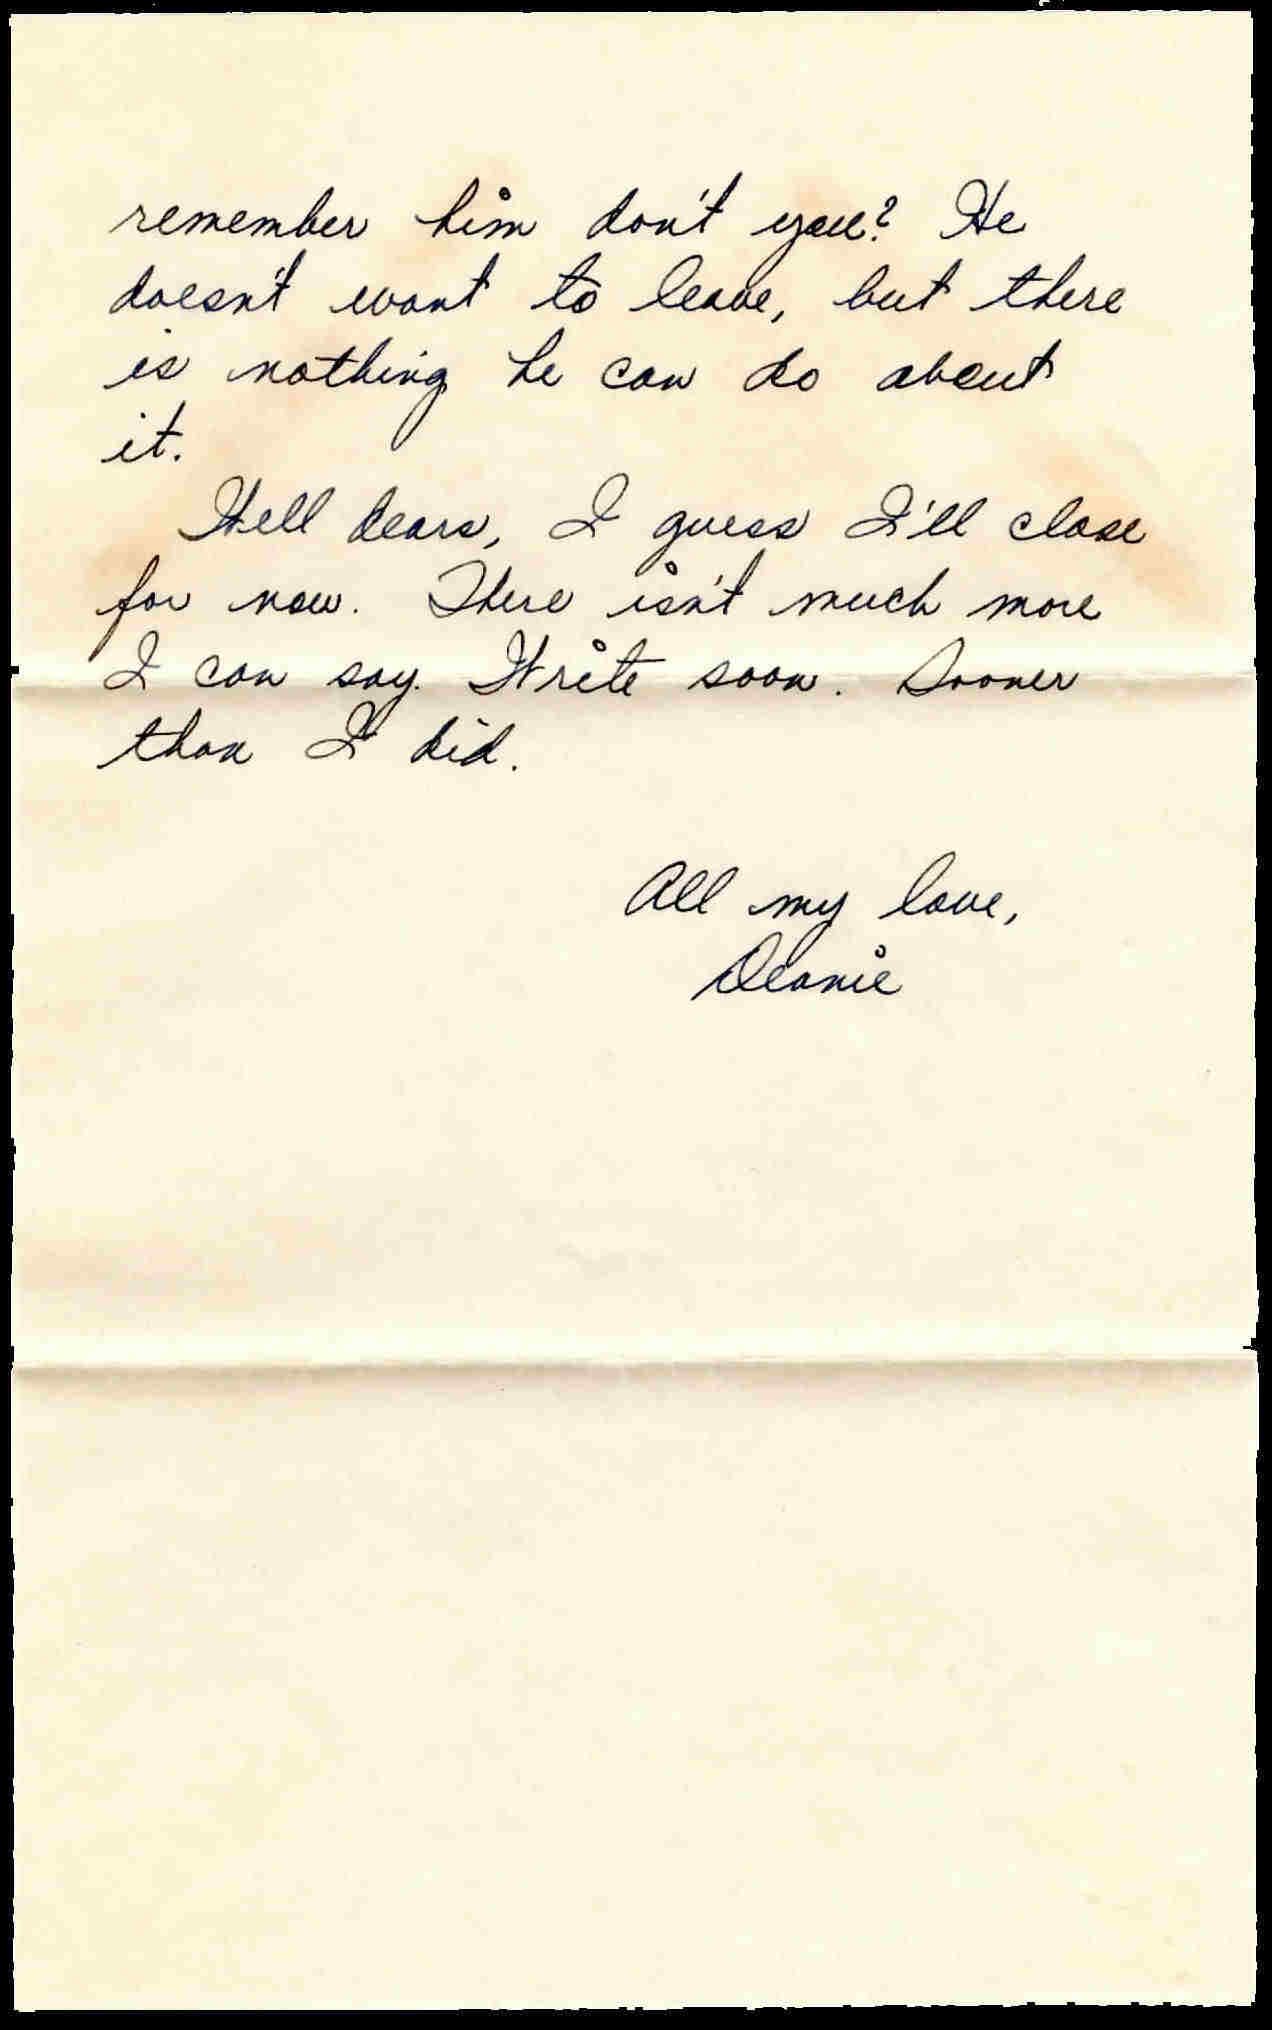 remember him don't you? He
doesn't want to leave, but there
is nothing he can do about
it.
Well dears, I guess I'll close
for now. There isn't much more
I can say. Write soon. Sooner
than I did.
All my love,
Deanie